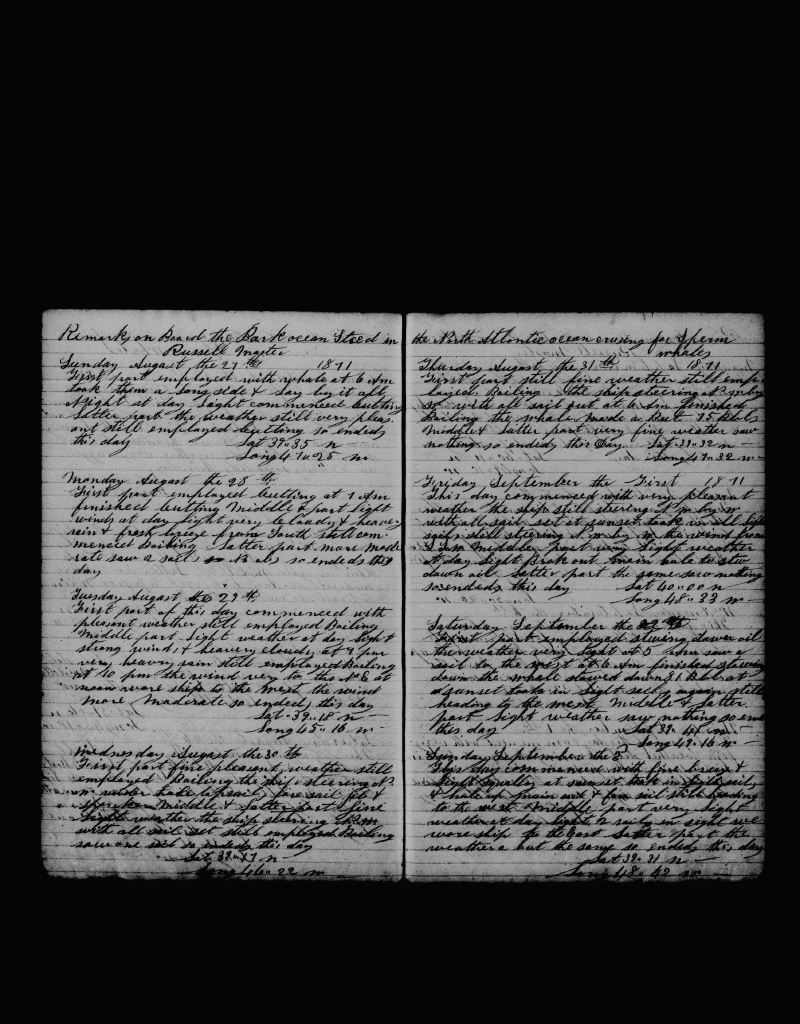 Remarks on Board the Bark ocean Steed in
Russell Master
Sunday August the 27th 1871
First part employed with whale at 6 Am
took them a long side & Lay by it all
Night at day Light commenced butting
Latter part the weather still very pleas
ant still employed butting so endeds
this day Lat 39.35 n
Long 47.25 m
Monday August the 28th
First part employed butting at 1 Am
finished butting Middle part Light
winds at day light very bloudy & heavey
rain & fresh breeze from South still com
menced Boiling Latter part more mode
rate saw 2 sails so ended this
day
Tuesday August the 29th
First part of this day commenced with
pleasent weather still employed Boiling
Middle part Light weather at day Light
strong winds & heavery cloudy at 4 pm
very heavery rain still employed Boiling
at 10 pm the wind very to the N & E at
noon wore ship to the West the wind
more Maderate so ended, this day
Lat 39.18 n
Long 45.16 m
Wednesday August the 30th
First part fine pleasent, weather still
employed Boiling the ship steering
Middle & Latter part fine
Light weather the ship steering
with all sail set still employed Boiling
saw one sail so endeds this day
n
Long 46.22 m
the North Atlontic ocean crusing for Sperm
whales
Thurday August, the 31th 1871
First part still fine weather still emplo
layed Boiling the ship steering
with all sail out at 6 Am finished
Boiling the whale made a bout 85 bbls
Middle & Latter part very fine weather saw
nothing so endeds this Day. Lat 39.32 n
Long 47.32 m
Friday September the First 1871
This day commensed with very pleasant
weather the ship still steering N m by m
with all sail set at sunset took in all light
sails still steering N m by m the wind from
Middle part very Light weather
at day Light Brok out main hale to stew
down oil Latter part the same saw nothing
so endeds this day Lat 40.00 n
Long 48.33 m
Saturday September the
First part employed stewing dower oil
the weather very Light at 5 Am saw a
sail to the west at 6 Am finished stewing
down the whale stowed down 81 Bbls at
sunset took in Light sails again still
heading to the west Middle & Latter
part Light weather saw nothing so end
this day Lat 39.41 n
Long 49.16 m
Sunday September the 3
This day commenced with fine breze &
Light squally at sunset took in Light sails
main sail & fore sail still heading
to the west Middle part very Light
weather at day Light 2 sails in sight we
wore ship to the East Latter part the
weathere but the same so endeds this day
Lat 39.31 n
Long 48.42 m